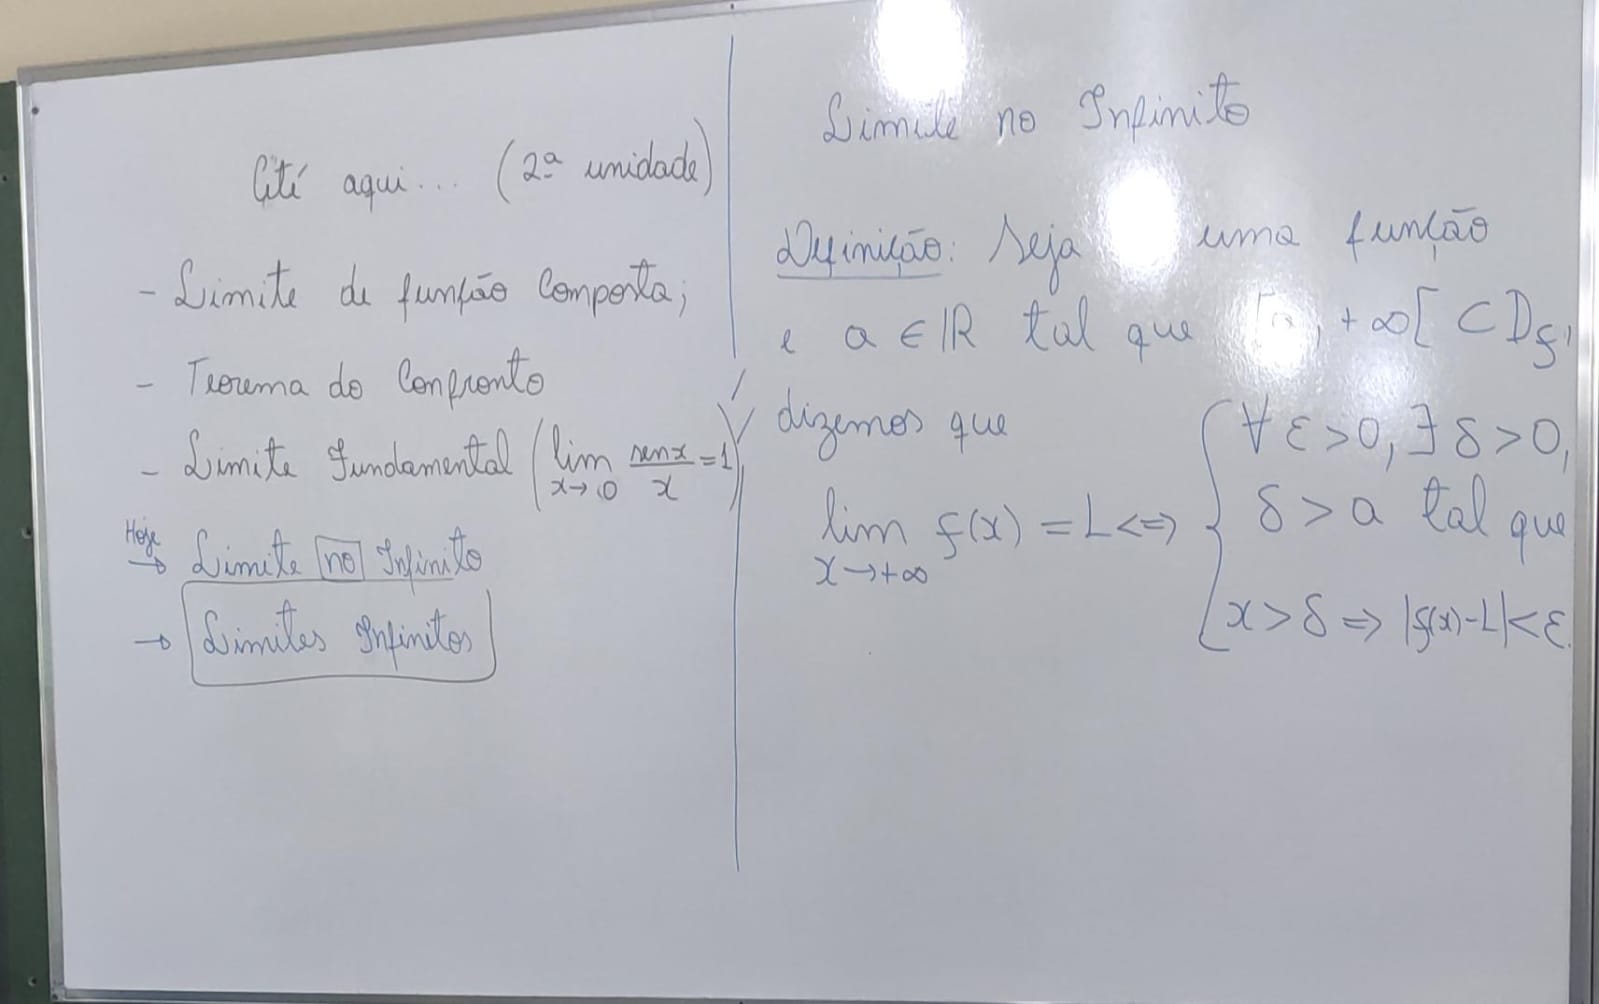 Até aqui... (2ª unidade)
- Limite de função Composta;
- Teorema do Confronto
- Limite Fundamental (lim x→0 senx/x = 1),
Hoje
→ Limite no Infinito
→ Limites Infinitos
Limite no Infinito
Definição: Seja uma função
e a ∈ ℝ tal que , +∞[ ⊂ D_f,
dizemos que
lim x→+∞ f(x) = L <=> { ∀ ε>0, ∃ δ>0,
δ > a tal que
x > δ => |f(x)-L| < ε.